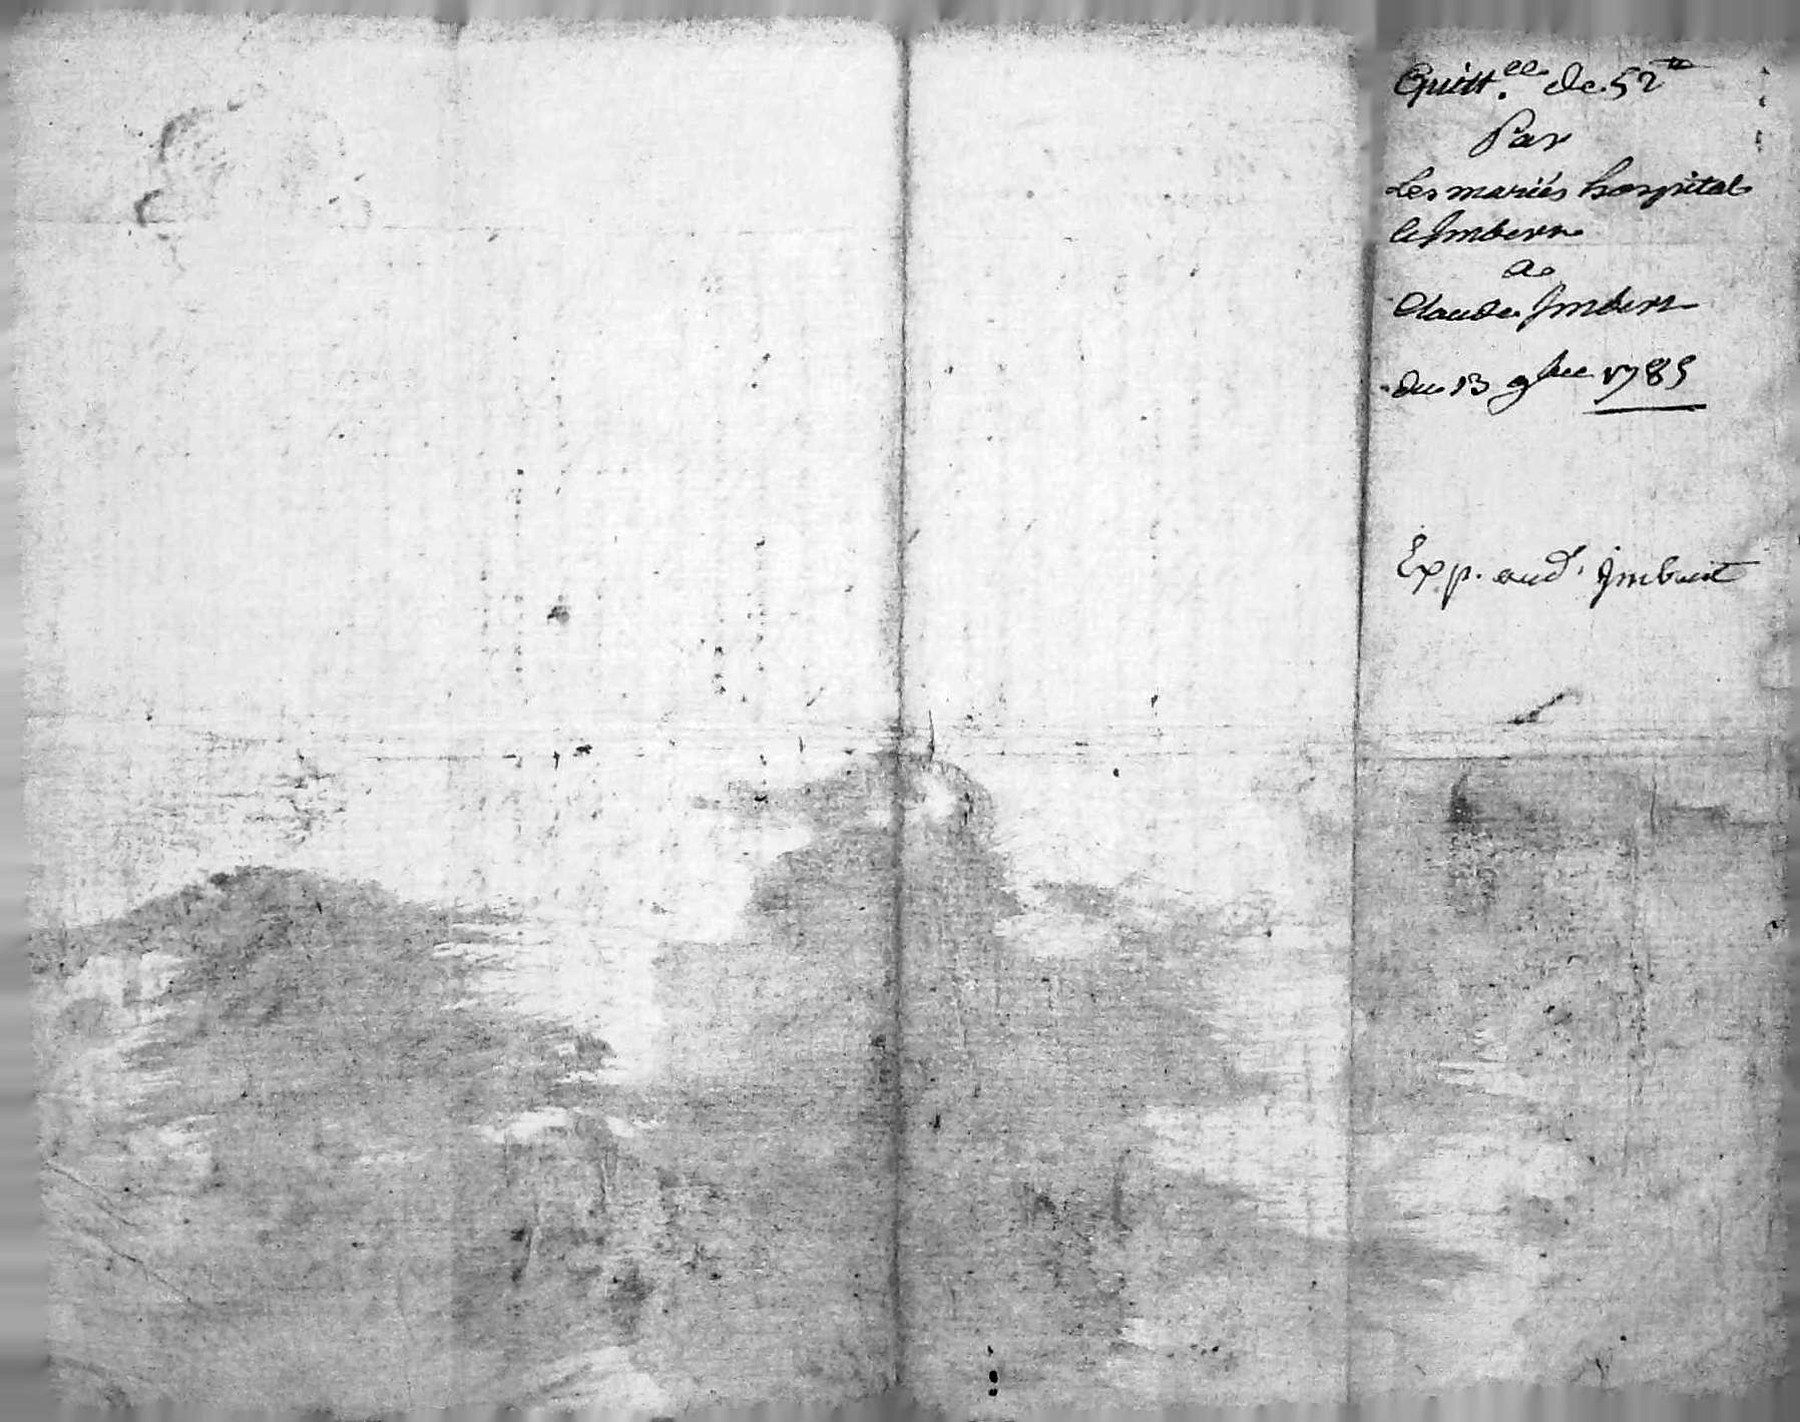 Quitt.ce de 52 tt
Par
Les mariés hospital
et Imbert
a
Claude Imbert
du 13 9bre 1785
Exp. aud. Imbert